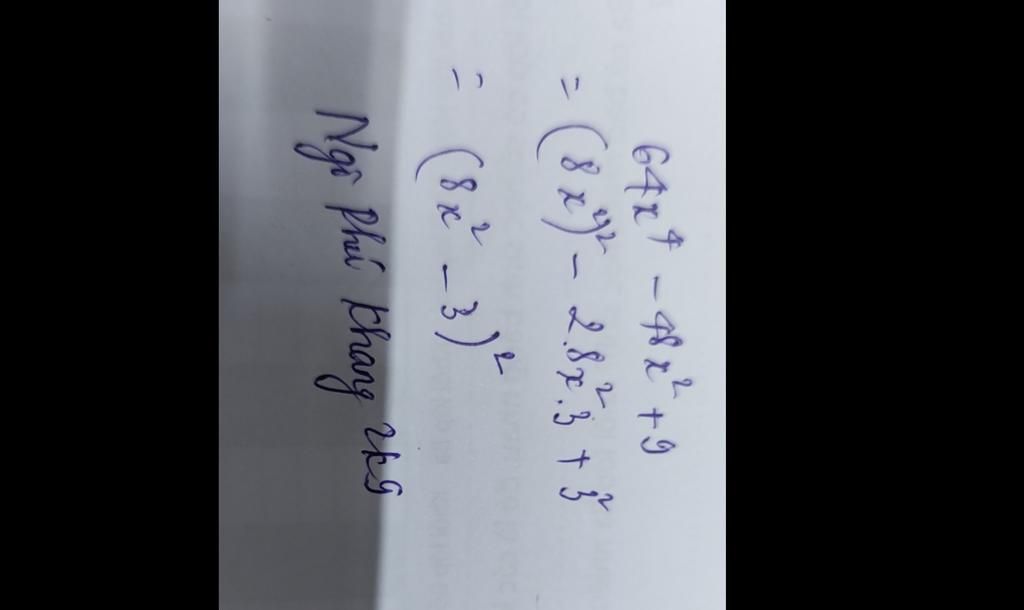 64x⁴ - 48x² + 9
= (8x⁴)² - 2.8x².3 + 3²
= (8x² - 3)²
Ngô Phú Khang 2k9